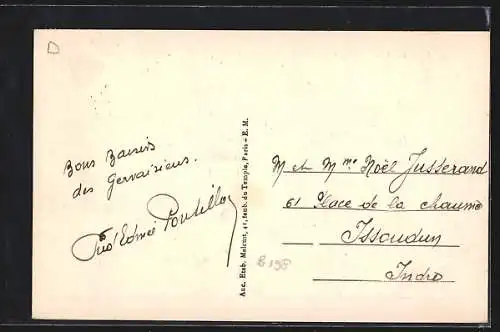 D
Bons Baisers
des Gervaisiens.
Anc. Etab. Malcuit, 41, faub. du Temple, Paris - E. M.
B 198
M et M me Noël Jusserand
61 Place de la chaume
Issoudun
Indre